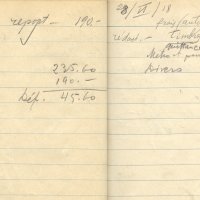 report - 190.-
235.60
190.-
Déf. 45.60
28/VI/18
frais/auto
rédact. - timbre
quittance
Métro et
Divers